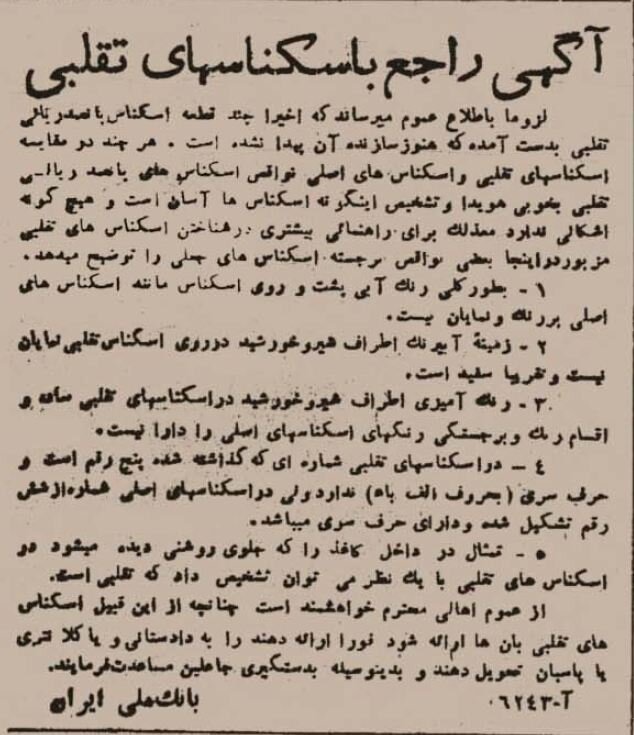 آگهی راجع باسکناسهای تقلبی
لزوما باطلاع عموم میرساند که اخیرا چند قطعه اسکناس پانصدریالی
تقلبی بدست آمده که هنوز سازنده آن پیدا نشده است . هر چند در مقایسه
اسکناسهای تقلبی و اسکناس های اصلی نواقص اسکناس های پانصد ریالی
تقلبی بخوبی هویدا و تشخیص اینگونه اسکناس ها آسان است و هیچ گونه
اشکالی ندارد معذلك برای راهنمائی بیشتری درشناختن اسکناس های تقلبی
مزبور در اینجا بعضی نواقص برجسته اسکناس های جعلی را توضیح میدهد.
۱ - بطور کلی رنك آبی پشت و روی اسکناس مانند اسکناس های
اصلی پررنك و نمایان نیست.
۲ - زمینهٔ آبیرنك اطراف شیروخورشید درروی اسکناس تقلبی نمایان
نیست و تقریبا سفید است.
۳ - رنك آمیزی اطراف شیروخورشید در اسکناسهای تقلبی ساده و
اقسام رنك و برجستگی رنگهای اسکناسهای اصلی را دارا نیست.
٤ - در اسکناسهای تقلبی شماره ای که گذاشته شده پنج رقم است و
حرف سری (بحروف الف باء) ندارد ولی در اسکناسهای اصلی شماره ازشش
رقم تشکیل شده و دارای حرف سری میباشد.
٥ - تمثال در داخل کاغذ را که جلوی روشنی دیده میشود در
اسکناس های تقلبی با یك نظر می توان تشخیص داد که تقلبی است.
از عموم اهالی محترم خواهشمند است چنانچه از این قبیل اسکناس
های تقلبی بان ها ارائه شود فورا ارائه دهند را به دادستانی و یا کلانتری
یا پاسبان تحویل دهند و بدینوسیله بدستگیری جاعلین مساعدت فرمایند.
آ-٠٦٢٤٣ بانك ملی ایران